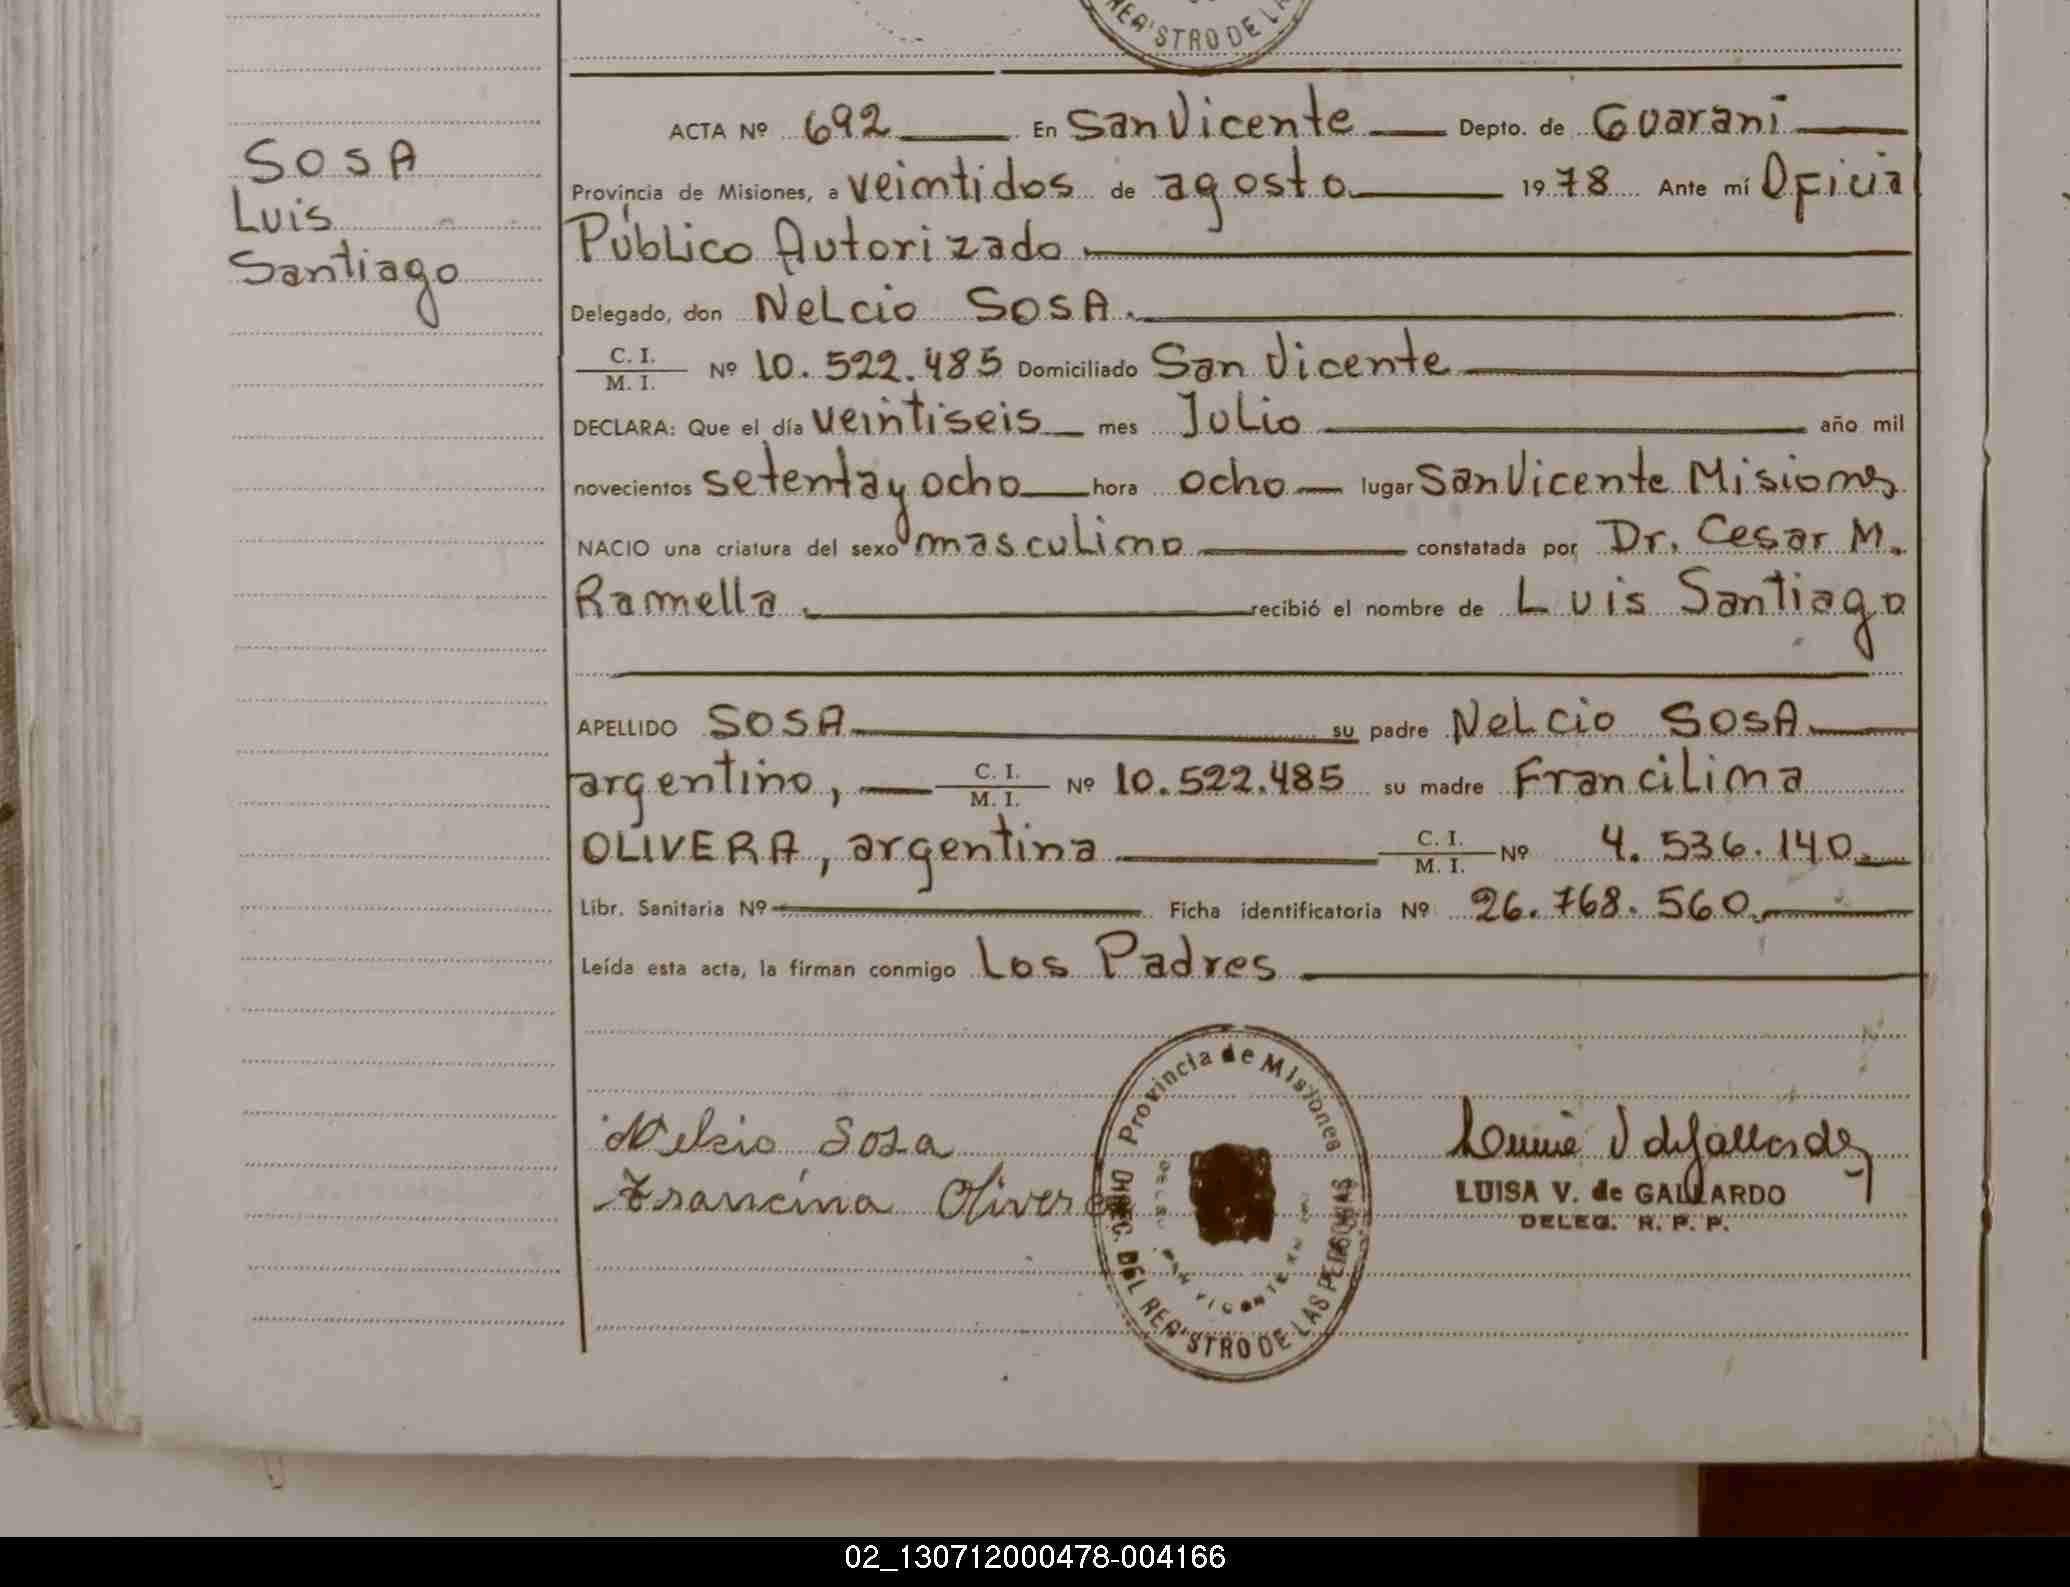 REG'STRO DE LA
SOSA
Luis
Santiago
ACTA Nº 692 En San Vicente Depto. de Guaraní
Provincia de Misiones, a veintidos de agosto 1978 Ante mí Oficial
Público Autorizado
Delegado, don Nelcio SOSA.
C. I.
M. I. Nº 10.522.485 Domiciliado San Vicente
DECLARA: Que el día veintiseis mes Julio año mil
novecientos setenta y ocho hora ocho lugar San Vicente Misiones
NACIO una criatura del sexo masculino constatada por Dr. Cesar M.
Ramella. recibió el nombre de Luis Santiago
APELLIDO SOSA su padre Nelcio SOSA
argentino, C. I.
M. I. Nº 10.522.485 su madre Francilina
OLIVERA, argentina C. I.
M. I. Nº 4.536.140.
Libr. Sanitaria Nº Ficha identificatoria Nº 26.768.560.
Leída esta acta, la firman conmigo Los Padres
Nelsio Sosa
Francina Olivera
Provincia de Misiones
DIREC. DEL REG'STRO DE LAS PERSONAS
SAN VICENTE
LUISA V. de GALLARDO
DELEG. R. P. P.
02_130712000478-004166